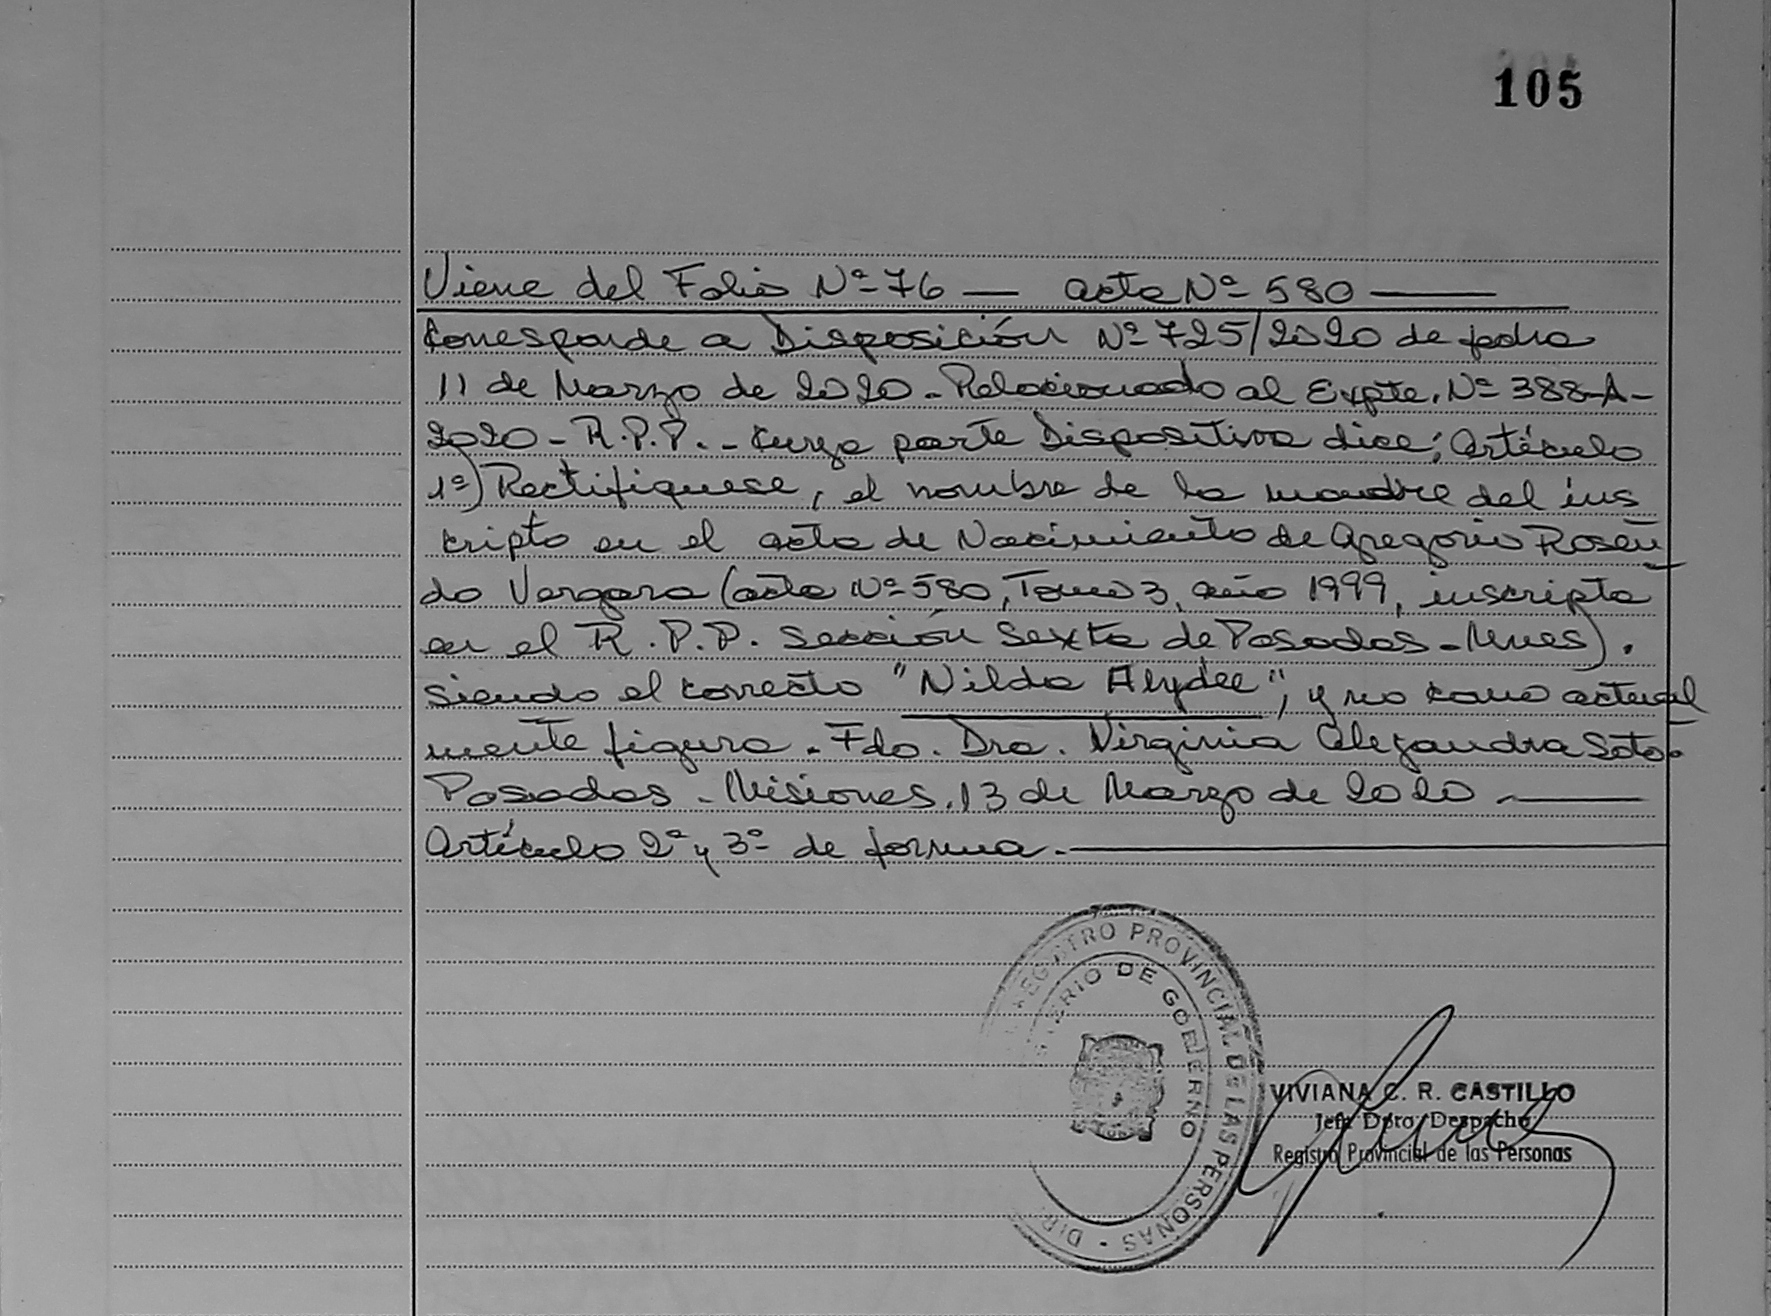 105
Viene del Folio Nº 76 — acta Nº 580 —
Corresponde a Disposición Nº 725/2020 de fecha
11 de Marzo de 2020 - Relacionado al Expte. Nº 388-A-
2020 - R.P.P. - Cuya parte Dispositiva dice; Artículo
1º) Rectifiquese, el nombre de la madre del ins
cripto en el acta de Nacimiento de Gregorio Rosen
do Vergara (acta Nº 580, Tomo 3, año 1999, inscripta
en el R.P.P. Sección Sexta de Posadas - Mnes).
siendo el correcto "Nilda Alydee", y no como actual
mente figura. Fdo. Dra. Virginia Alejandra Soto.
Posadas - Misiones, 13 de Marzo de 2020 —
Artículo 2º y 3º de forma. —
REGISTRO PROVINCIAL DE LAS PERSONAS - DIR
STERIO DE GOBIERNO
VIVIANA C. R. CASTILLO
Jefa Dpto. Despacho
Registro Provincial de las Personas